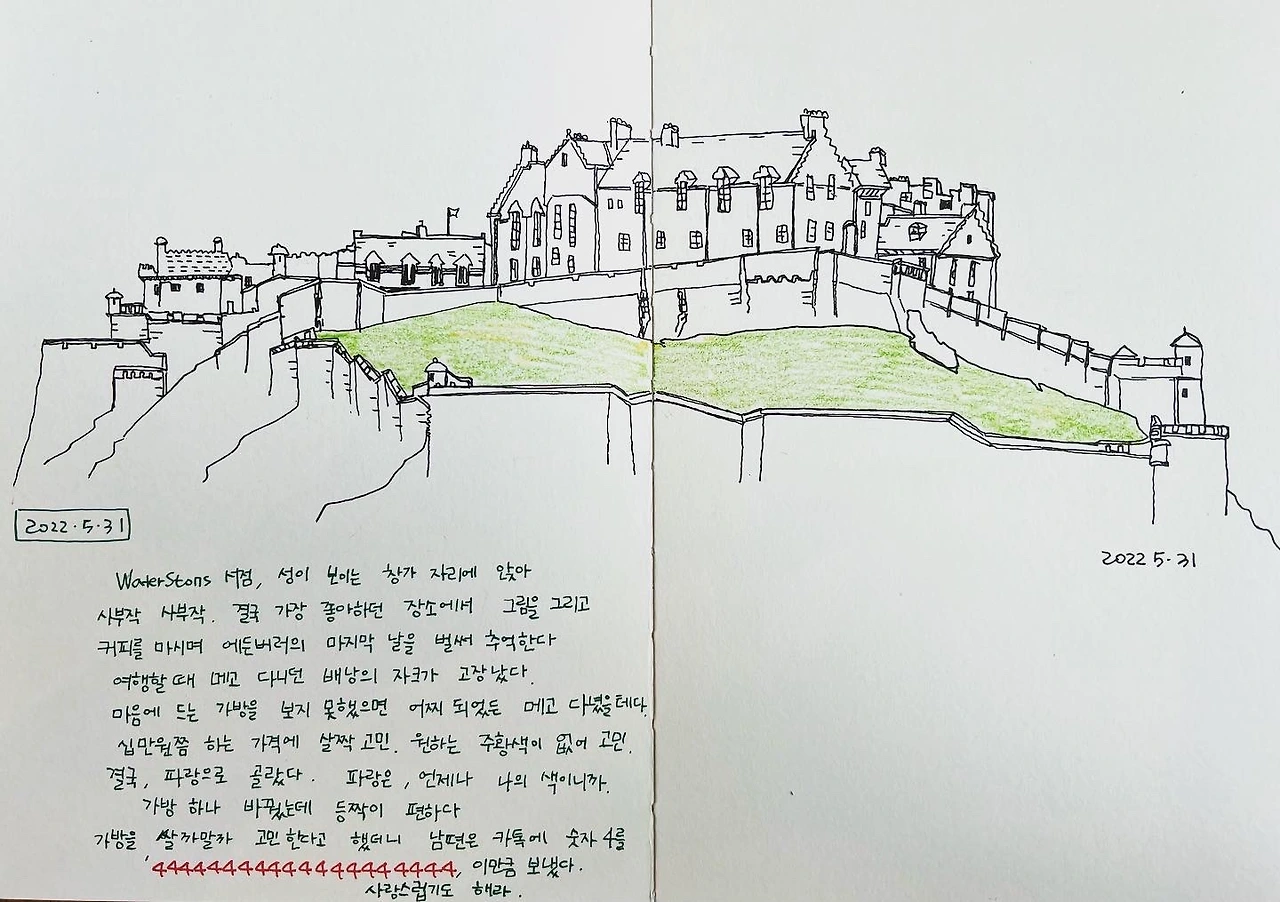 2022.5.31
2022 5.31
Waterstons 서점, 성이 보이는 창가 자리에 앉아
사부작 사부작. 결국 가장 좋아하던 장소에서 그림을 그리고
커피를 마시며 에든버러의 마지막 날을 벌써 추억한다
여행할 때 메고 다니던 배낭의 자크가 고장났다.
마음에 드는 가방을 보지 못했으면 어찌 되었든 메고 다녔을테다.
십만원쯤 하는 가격에 살짝 고민. 원하는 주황색이 없어 고민.
결국, 파랑으로 골랐다. 파랑은, 언제나 나의 색이니까.
가방 하나 바꿨는데 등짝이 편하다
가방을 살까말까 고민한다고 했더니 남편은 카톡에 숫자 4를
'44444444444444444444, 이만큼 보냈다.
사랑스럽기도 해라.